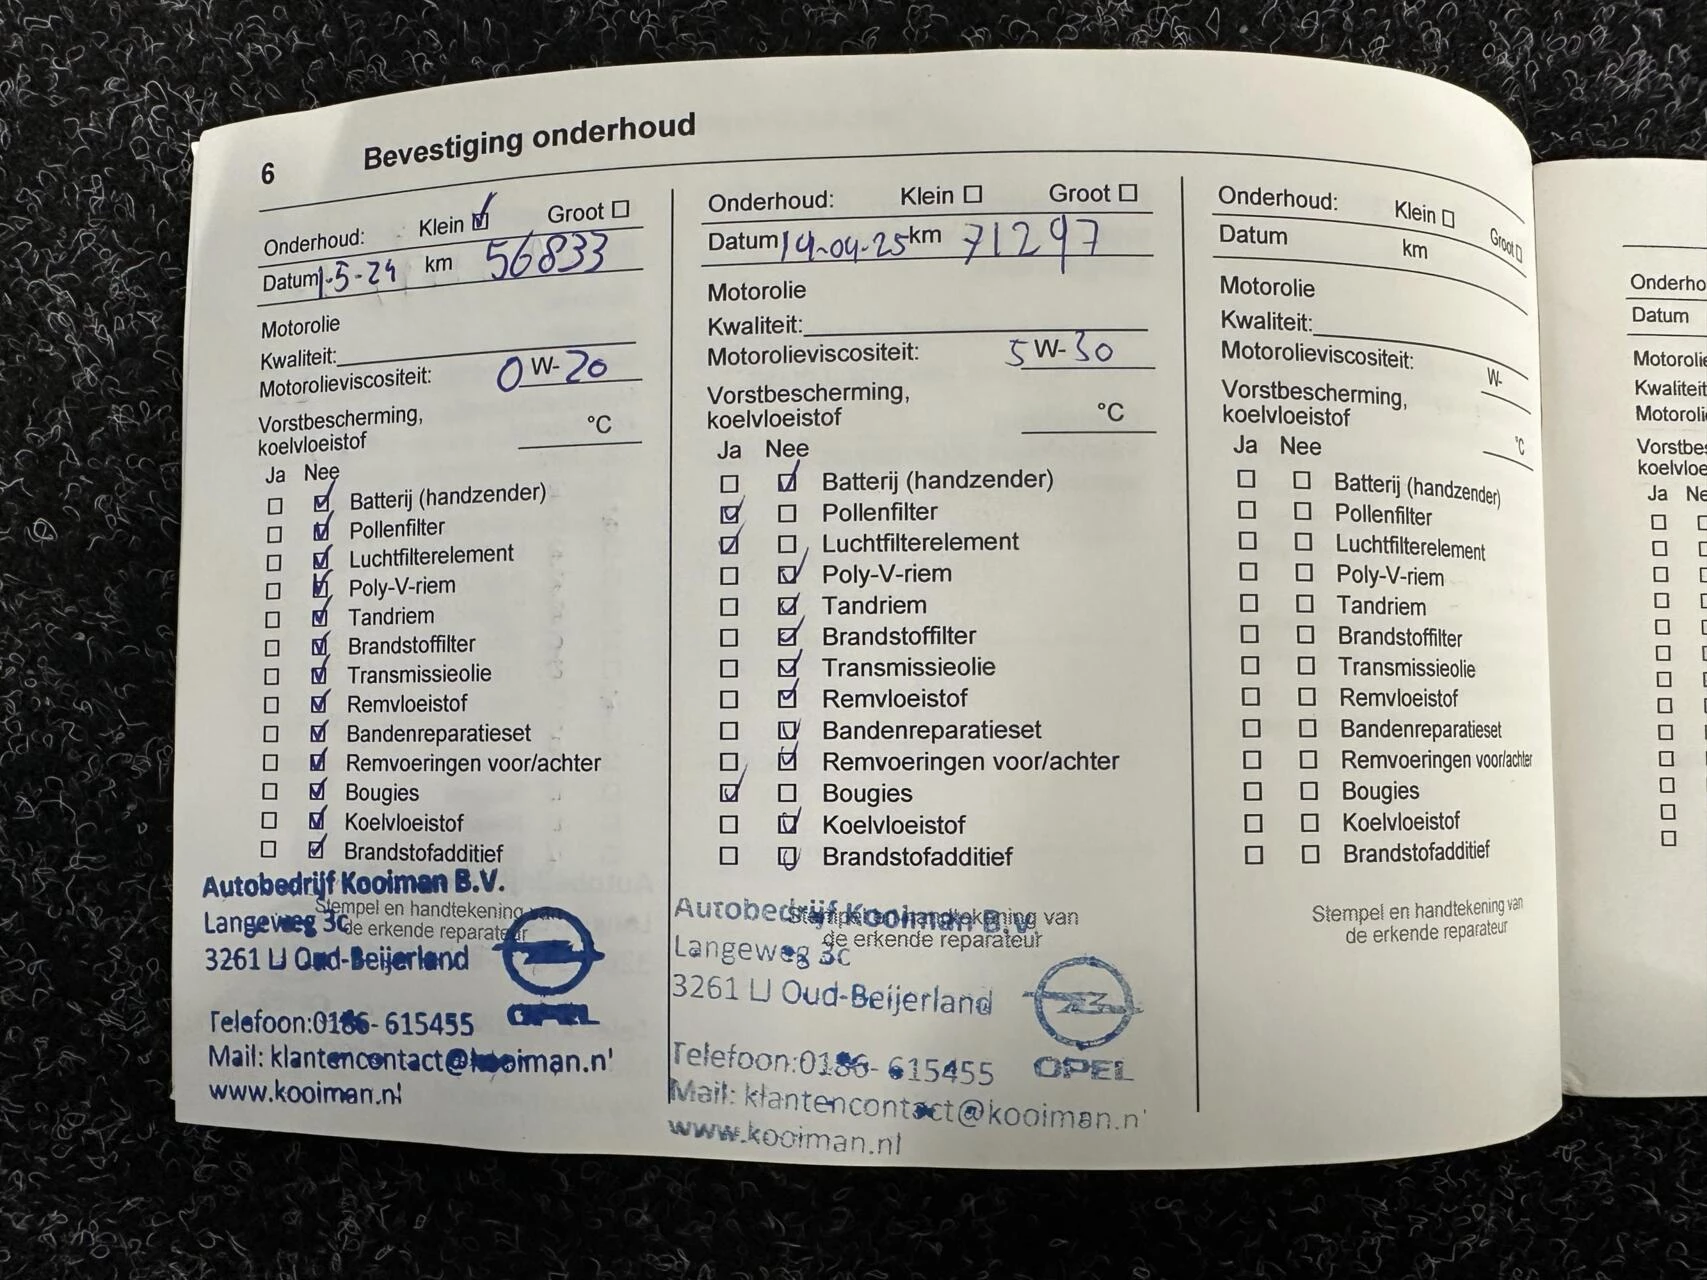 6 Bevestiging onderhoud
Onderhoud: Klein Groot
Datum 1-5-24 km 56833
Motorolie
Kwaliteit:
Motorolieviscositeit: 0 W-20
Vorstbescherming,
koelvloeistof °C
Ja Nee
Batterij (handzender)
Pollenfilter
Luchtfilterelement
Poly-V-riem
Tandriem
Brandstoffilter
Transmissieolie
Remvloeistof
Bandenreparatieset
Remvoeringen voor/achter
Bougies
Koelvloeistof
Brandstofadditief
Stempel en handtekening van
de erkende reparateur
Autobedrijf Kooiman B.V.
Langeweg 3c
3261 LJ Oud-Beijerland
OPEL
Telefoon:0186-615455
Mail: klantencontact@kooiman.nl
www.kooiman.nl
Onderhoud: Klein Groot
Datum 14-04-25 km 71297
Motorolie
Kwaliteit:
Motorolieviscositeit: 5 W-30
Vorstbescherming,
koelvloeistof °C
Ja Nee
Batterij (handzender)
Pollenfilter
Luchtfilterelement
Poly-V-riem
Tandriem
Brandstoffilter
Transmissieolie
Remvloeistof
Bandenreparatieset
Remvoeringen voor/achter
Bougies
Koelvloeistof
Brandstofadditief
Stempel en handtekening van
de erkende reparateur
Autobedrijf Kooiman B.V.
Langeweg 3c
3261 LJ Oud-Beijerland
OPEL
Telefoon:0186-615455
Mail: klantencontact@kooiman.nl
www.kooiman.nl
Onderhoud: Klein Groot
Datum km
Motorolie
Kwaliteit:
Motorolieviscositeit: W-
Vorstbescherming,
koelvloeistof °C
Ja Nee
Batterij (handzender)
Pollenfilter
Luchtfilterelement
Poly-V-riem
Tandriem
Brandstoffilter
Transmissieolie
Remvloeistof
Bandenreparatieset
Remvoeringen voor/achter
Bougies
Koelvloeistof
Brandstofadditief
Stempel en handtekening van
de erkende reparateur
Onderho
Datum
Motorolie
Kwaliteit
Motorolie
Vorstbes
koelvloe
Ja Ne